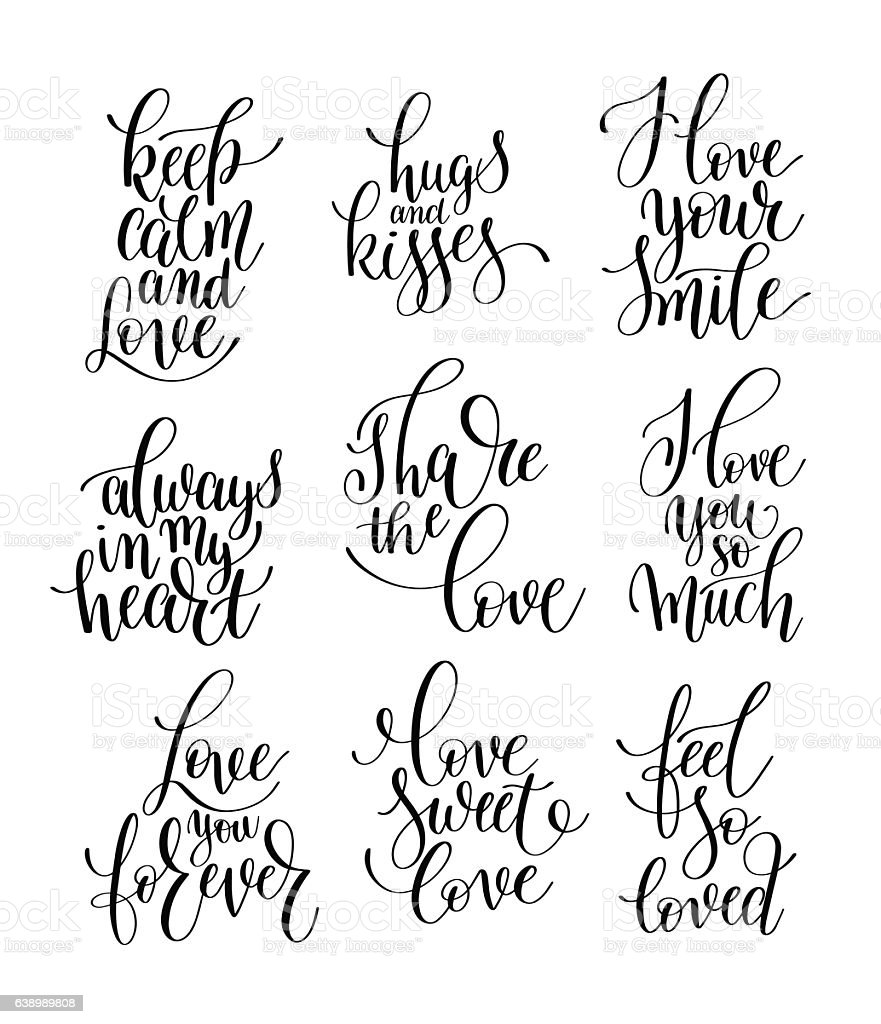 keep
calm
and
Love
hugs
and
kisses
I love
your
smile
always
in my
heart
Share
the
love
I love
you
so
much
Love
you
forever
love
sweet
love
feel
so
loved
iStock
by Getty Images™
638989808